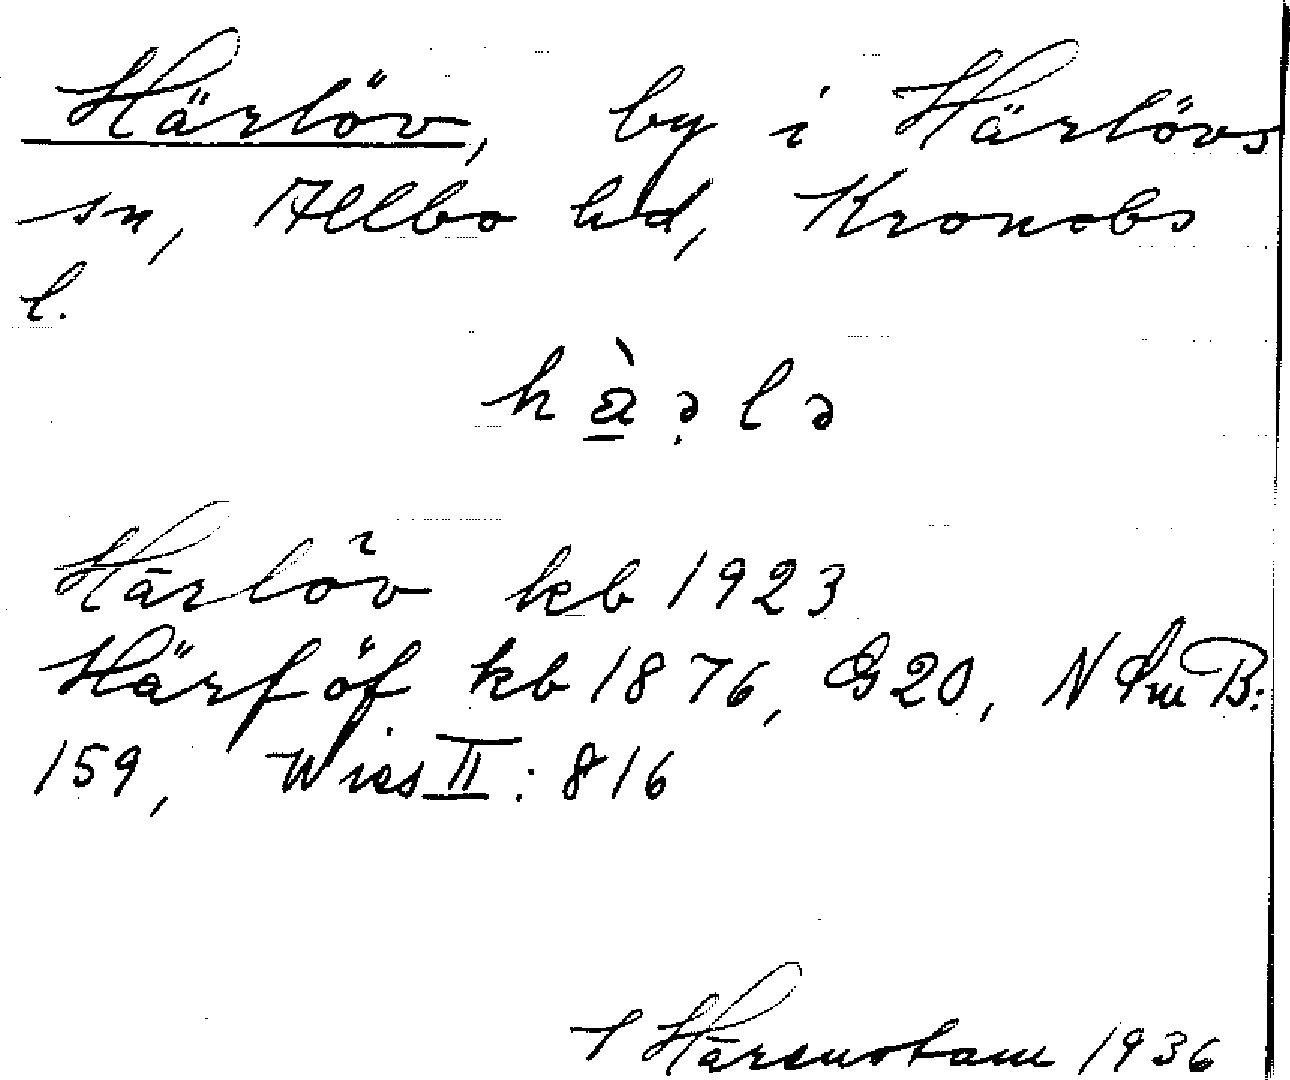 Härlöv, by i Härlövs
sn, Allbo hd, Kronobs
l.
Härlöv kb 1923
Härlöf kb 1876, G20, N Sm B:
159, Wies II: 816
1936